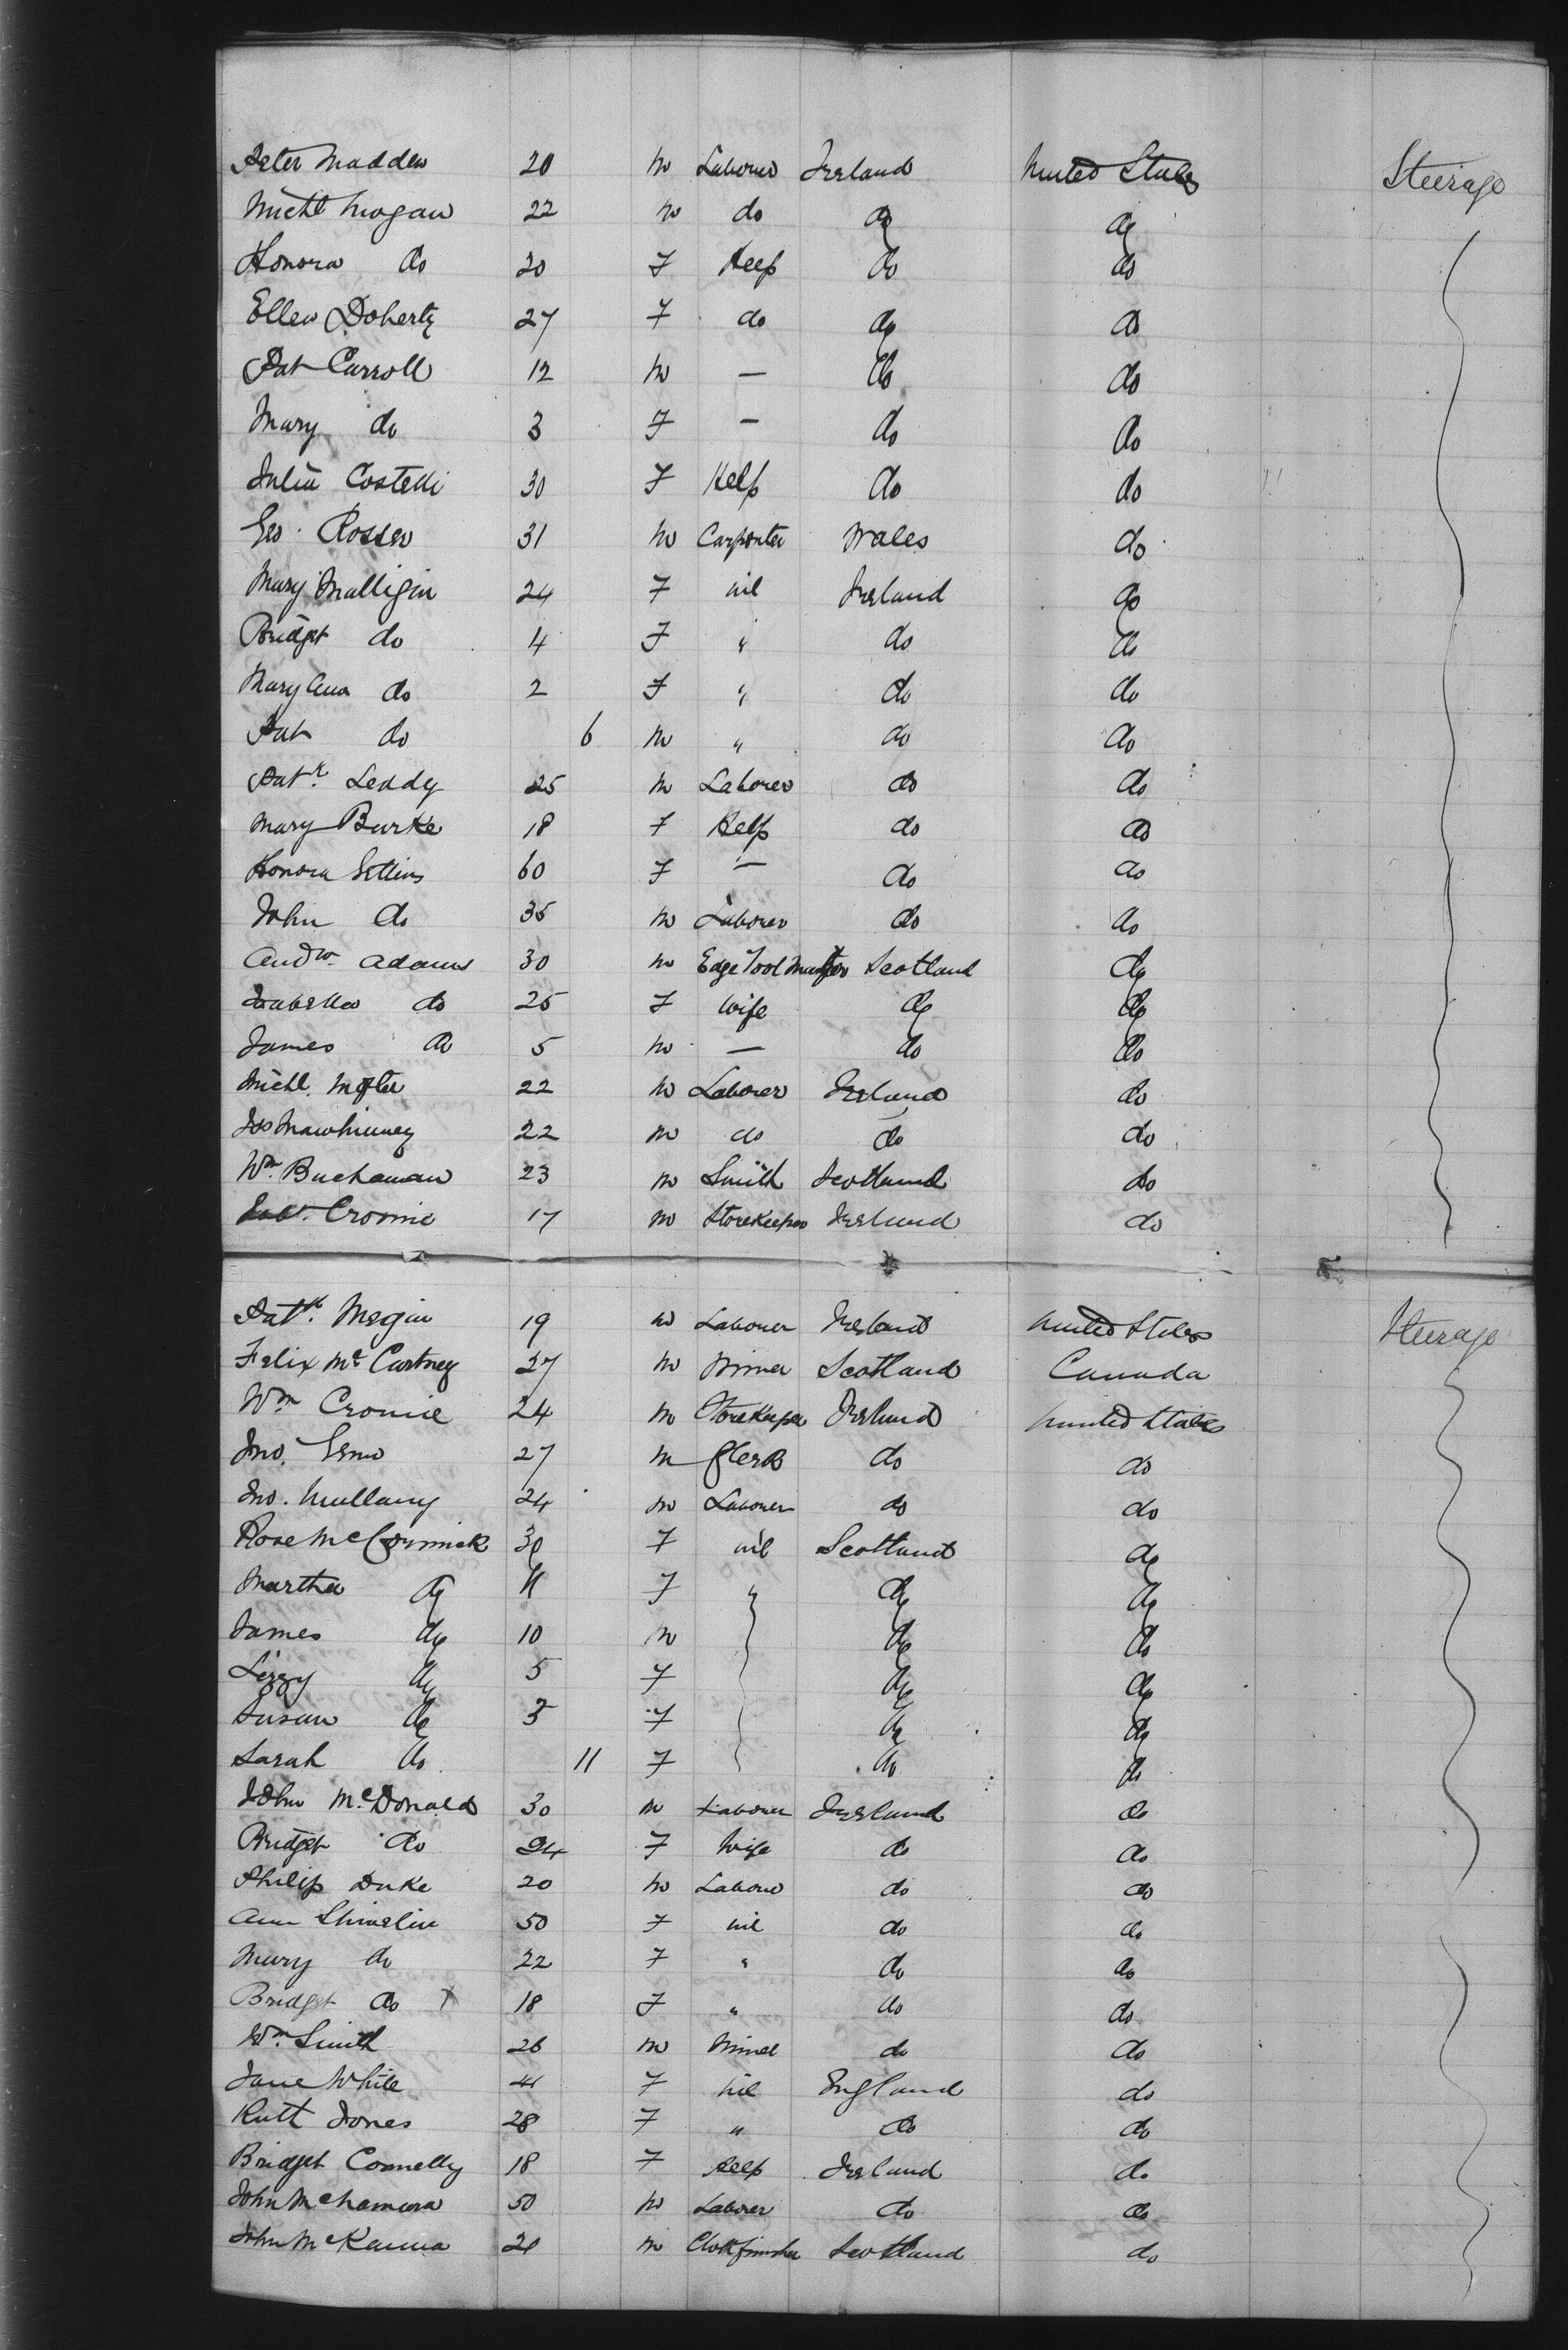 Peter Madden 20 m Laborer Ireland United States Steerage
Michl Hogan 22 m do do do
Honora do 20 F Help do do
Ellen Doherty 27 F do do do
Pat Carroll 12 m — do do
Mary do 3 F — do do
Julia Costelli 30 F Help do do
Geo. Rosser 31 m Carpenter Wales do
Mary Mulligan 24 F nil Ireland do
Bridget do 4 F " do do
Mary Ann do 2 F " do do
Pat do 6 m " do do
Patk. Leddy 25 m Laborer do do
Mary Burke 18 F Help do do
Honora 60 F — do do
John do 35 m Laborer do do
Andw. Adams 30 m Edge Tool Scotland do
Isabella do 25 F Wife do do
James do 5 m — do do
Michl. 22 m Laborer Ireland do
Jas Mawhinney 22 m do do do
Wm. Buchanan 23 m Smith Scotland do
Cromie 17 m Storekeeper Ireland do
Patk. Megin 19 m Laborer Ireland United States Steerage
Felix McCartney 27 m Miner Scotland Canada
Wm Cromie 24 m Storekeeper Ireland United States
Jno. 27 m Clerk do do
Jno. Mullany 24 m Laborer do do
Rose McCormick 30 F nil Scotland do
Martha do 11 F " do do
James do 10 m do do
Lizzy do 5 F do do
Susan do 3 F do do
Sarah do 11 F do do
John McDonald 30 m Laborer Ireland do
Bridget do 24 F Wife do do
Philip Duke 20 m Laborer do do
Ann 50 F nil do do
Mary do 22 F " do do
Bridget do x 18 F " do do
Wm. Smith 26 m Miner do do
Jane White F nil England do
Ruth Jones 28 F " do do
Bridget Connelly 18 F Help Ireland do
John McNamara 50 m Laborer do do
John McKenna 21 m Cloth finisher Scotland do